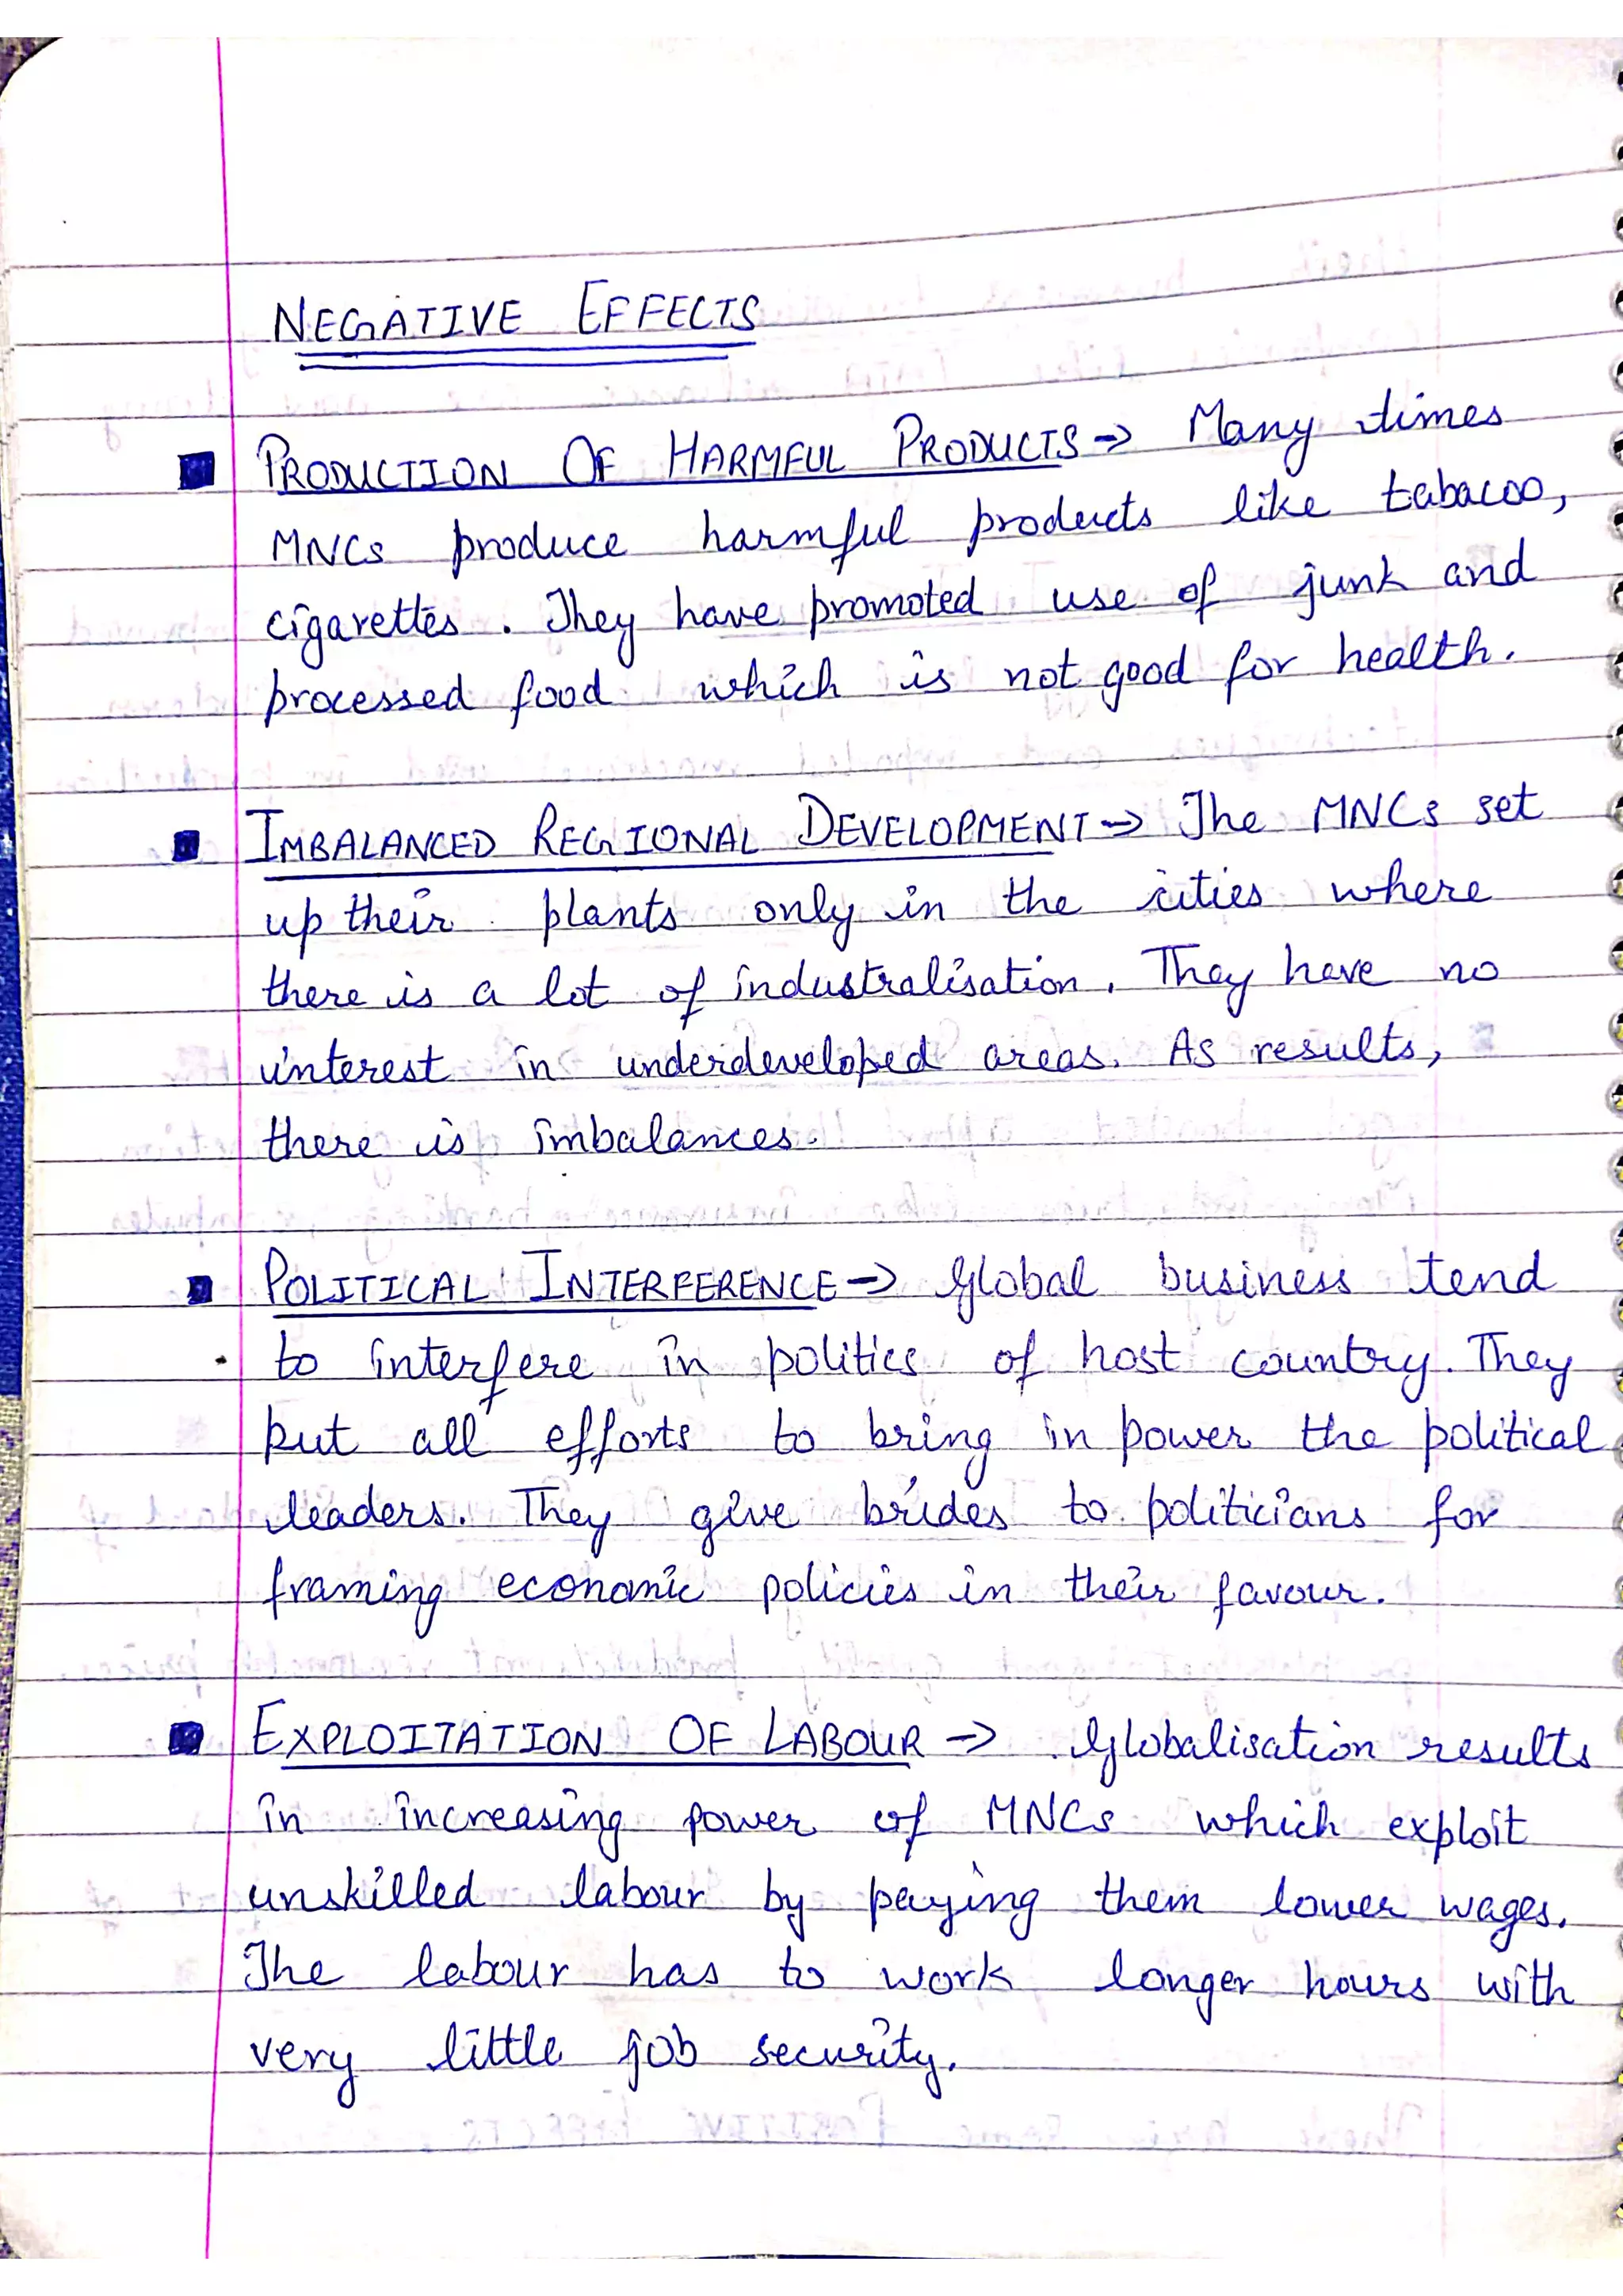 NEGATIVE EFFECTS
PRODUCTION OF HARMFUL PRODUCTS → Many times
MNCs produce harmful products like tabacoo,
cigarettes. They have promoted use of junk and
processed food which is not good for health.
IMBALANCED REGIONAL DEVELOPMENT → The MNCs set
up their plants only in the cities where
there is a lot of industralisation. They have no
interest in underdeveloped areas. As results,
there is imbalances.
POLITICAL INTERFERENCE → Global business tend
to interfere in politics of host country. They
put all efforts to bring in power the political
leaders. They give brides to politicians for
framing economic policies in their favour.
EXPLOITATION OF LABOUR → Globalisation results
in increasing power of MNCs which exploit
unskilled labour by paying them lower wages.
The labour has to work longer hours with
very little job security.